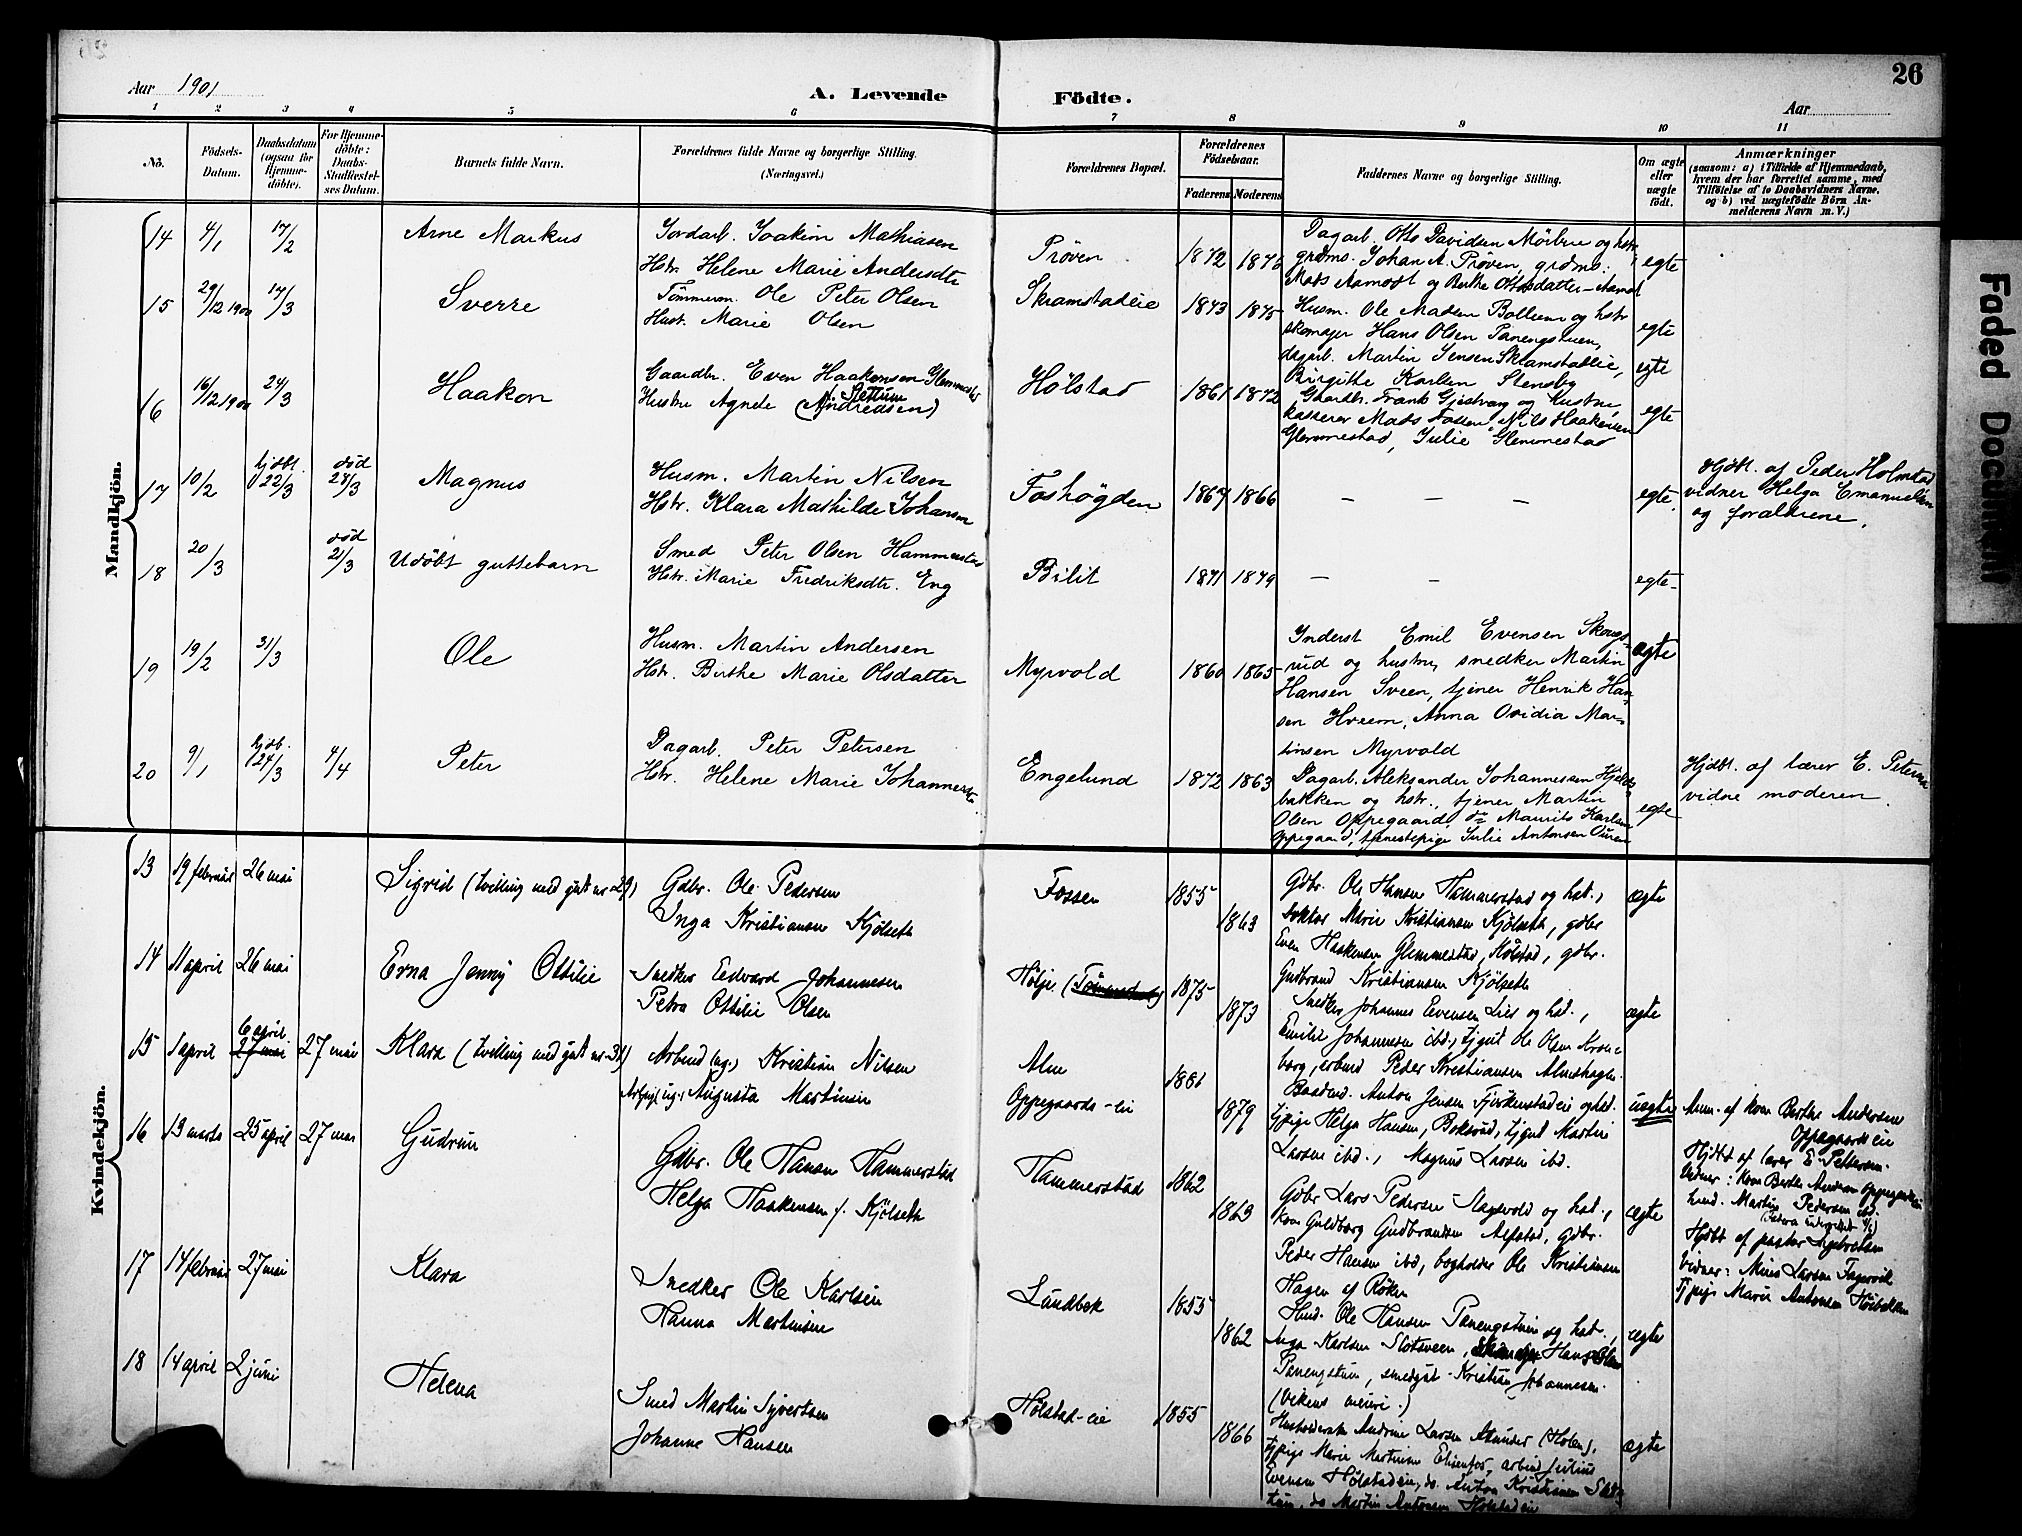 26
Aar 1901
A. Levende Födte.
Aar
1 2 3 4 5 6 7 8 9 10 11
No.
Födsels-Datum.
Daabsdatum (ogsaa for Hjemme-döbte).
For Hjemme-döbte: Daabs-Stadfæstel-ses Datum.
Barnets fulde Navn.
Forældrenes fulde Navne og borgerlige Stilling.
(Næringsvei.)
Forældrenes Bopæl.
Forældrenes Födselsaar.
Faderens Moderens
Faddernes Navne og borgerlige Stilling.
Om ægte eller uægte födt.
Anmærkninger
(saasom: a) i Tilfælde af Hjemmedaab,
hvem der har forrettet samme, med
Tilföielse af to Daabsvidners Navne,
og b) ved uægtefödte Börn An-
melderens Navn m. V.)
Mandkjön.
14 4/1 17/2 Arne Markus
Jordarb. Joakim Mathiasen
Hstr. Helene Marie Andersdtr
Pröven 1872 1876
Dagarb. Otto Davidsen Mörbye og hstr
grdms. Johan A. Pröven, grdms.
Mads Aamodt og Berthe Ottosdatter - Aamodt
egte
15 29/12 1900 17/3 Sverre
Tömmerm. Ole Peter Olsen
Hust. Marie Olsen
Skramstadeie 1873 1875
Husm. Ole Madsen Bollum og hstr
skomager Hans Olsen Panengstuen,
dagarb. Martin Jensen Skramstadeie,
Birgithe Karlsen Stensby
egte
egte
16 16/12 1900 24/3 Haakon
Gaardbr. Even Haakensen Glemmestad
Hustru Agnete (Andredsen)
Hölstad 1861 1872
Gaardbr. Frank Gjestvang og Hustru,
kasserer Mads Fossen, Nils Haakensen
Glemmestad, Julie Glemmestad
egte
17 10/2 hjdbt. 22/3 död 24/3 Magnus
Husm. Martin Nilsen
Hstr. Klara Mathilde Johansen
Foshögden 1867 1866 - - - egte.
Hjdbt. af Peder Holmstad
vidner Helga Emanuelsen
og forældrene.
18 20/3 död 21/3 Udöbt guttebarn
Smed Peter Olsen Hammerstad
Hstr. Marie Fredriksdtr. Eng
Bilit 1871 1879 - - egte-
19 19/2 31/3 Ole
Husm. Martin Andersen
Hstr. Berthe Marie Olsdatter
Myrvold 1860 1865
Inderst Emil Evensen Skougs-
rud og hustru, snedker Martin
Hansen Sveen, tjener Henrik Han-
sen Hveem, Anna Ovidia Mar-
tinsen Myrvold
ægte
20 9/1 hjdb. 24/3 4/4 Peter
Dagarb. Peter Petersen
Hstr. Helene Marie Johannesdtr
Engelund 1872 1863
Dagarb. Aleksander Johannessen Hjelds-
bakken og hstr., tjener Martin
Olsen Oppegaard, do Maurits Karlsen
Oppegaard, tjenestepige Julie Antonsen Ouren
egte
Hjdbt. af lærer E. Petersen
vidne moderen.
Kvindekjön.
13 19 februar 26 mai Sigrid (tvilling med gut nr 29)
Gdbr. Ole Pedersen
Inga Kristiansen Kjölseth
Fossen 1855 1863
Gdbr. Ole Hansen Hammerstad og hst.,
doktor Marie Kristiansen Kjölseth, gdbr
Even Haakensen Glemmestad, Hölstad, gdbr.
Gudbrand Kristiansen Kjölseth
ægte
14 11 april 26 mai Erna Jenny Ottilie
Snedker Edvard Johannesen
Petra Ottilie Olsen
Hölje 1875 1873
Snedker Johannes Evensen Lies og hst.,
Emilie Johannesen ibd., tjgut Ole Olsen
borg, arbmd Peder Kristiansen Almshagen.
ægte
15 1 april 6 april 27 mai 27 mai Klara (tvilling med gut nr 31)
Arbmd (ug.) Kristian Nilsen
Arbpige (ug.) Augusta Martinsen
Alm 1881
Oppegaards-eie 1879
Baadmd. Anton Jensen Fjerkenstadeie og hst.
tjpige Helga Hansen, Boksrud, tjgut Martin
Larsen ibd., Magnus Larsen ibd.
uægte
Anm. af kone Berthe Andersen
Oppegaardseie
Hjdbt af lærer E. Pettersen.
Vidner: kone Berthe Andersen Oppegaardseie
hmd. Martin Pedersen ibd.
16 13 marts 25 april 27 mai Gudrun
Gdbr. Ole Hansen Hammerstad
Helga Haakensen f. Kjölseth
Hammerstad 1862 1863
Gdbr Lars Pedersen Slagsvold og hst.,
kone Guldborg Gudbrandsen Alfstad, Gdbr.
Peder Hansen ibd, bogholder Ole Kristiansen
Hagen af Röken
ægte
Hjdbt af pastor Sigvartsen
Vidner: Mina Larsen Fagervik
Tjpige Marie Antonsen Höibakken
17 14 februar 27 mai Klara
Snedker Ole Karlsen
Hanna Martinsen
Lundbek 1855 1862
Hmd. Ole Hansen Panengstuen og hst.,
Inga Karlsen Slotsveen, Hans Olsen
Panengstuen, smedgut Kristian Johannesen.
(Vikens meieri.)
ægte
18 14 april 2 juni Helena
Smed Martin Syvertsen
Johanne Hansen
Hölstad-eie 1855 1866
Andrine Larsen (Holen),
tjpige Marie Martinsen, arbmd Julius
Evensen Hölstadeie, do. Anton Kristiansen
do Martin Antonsen Hölstadeie
ægte
Faded Document